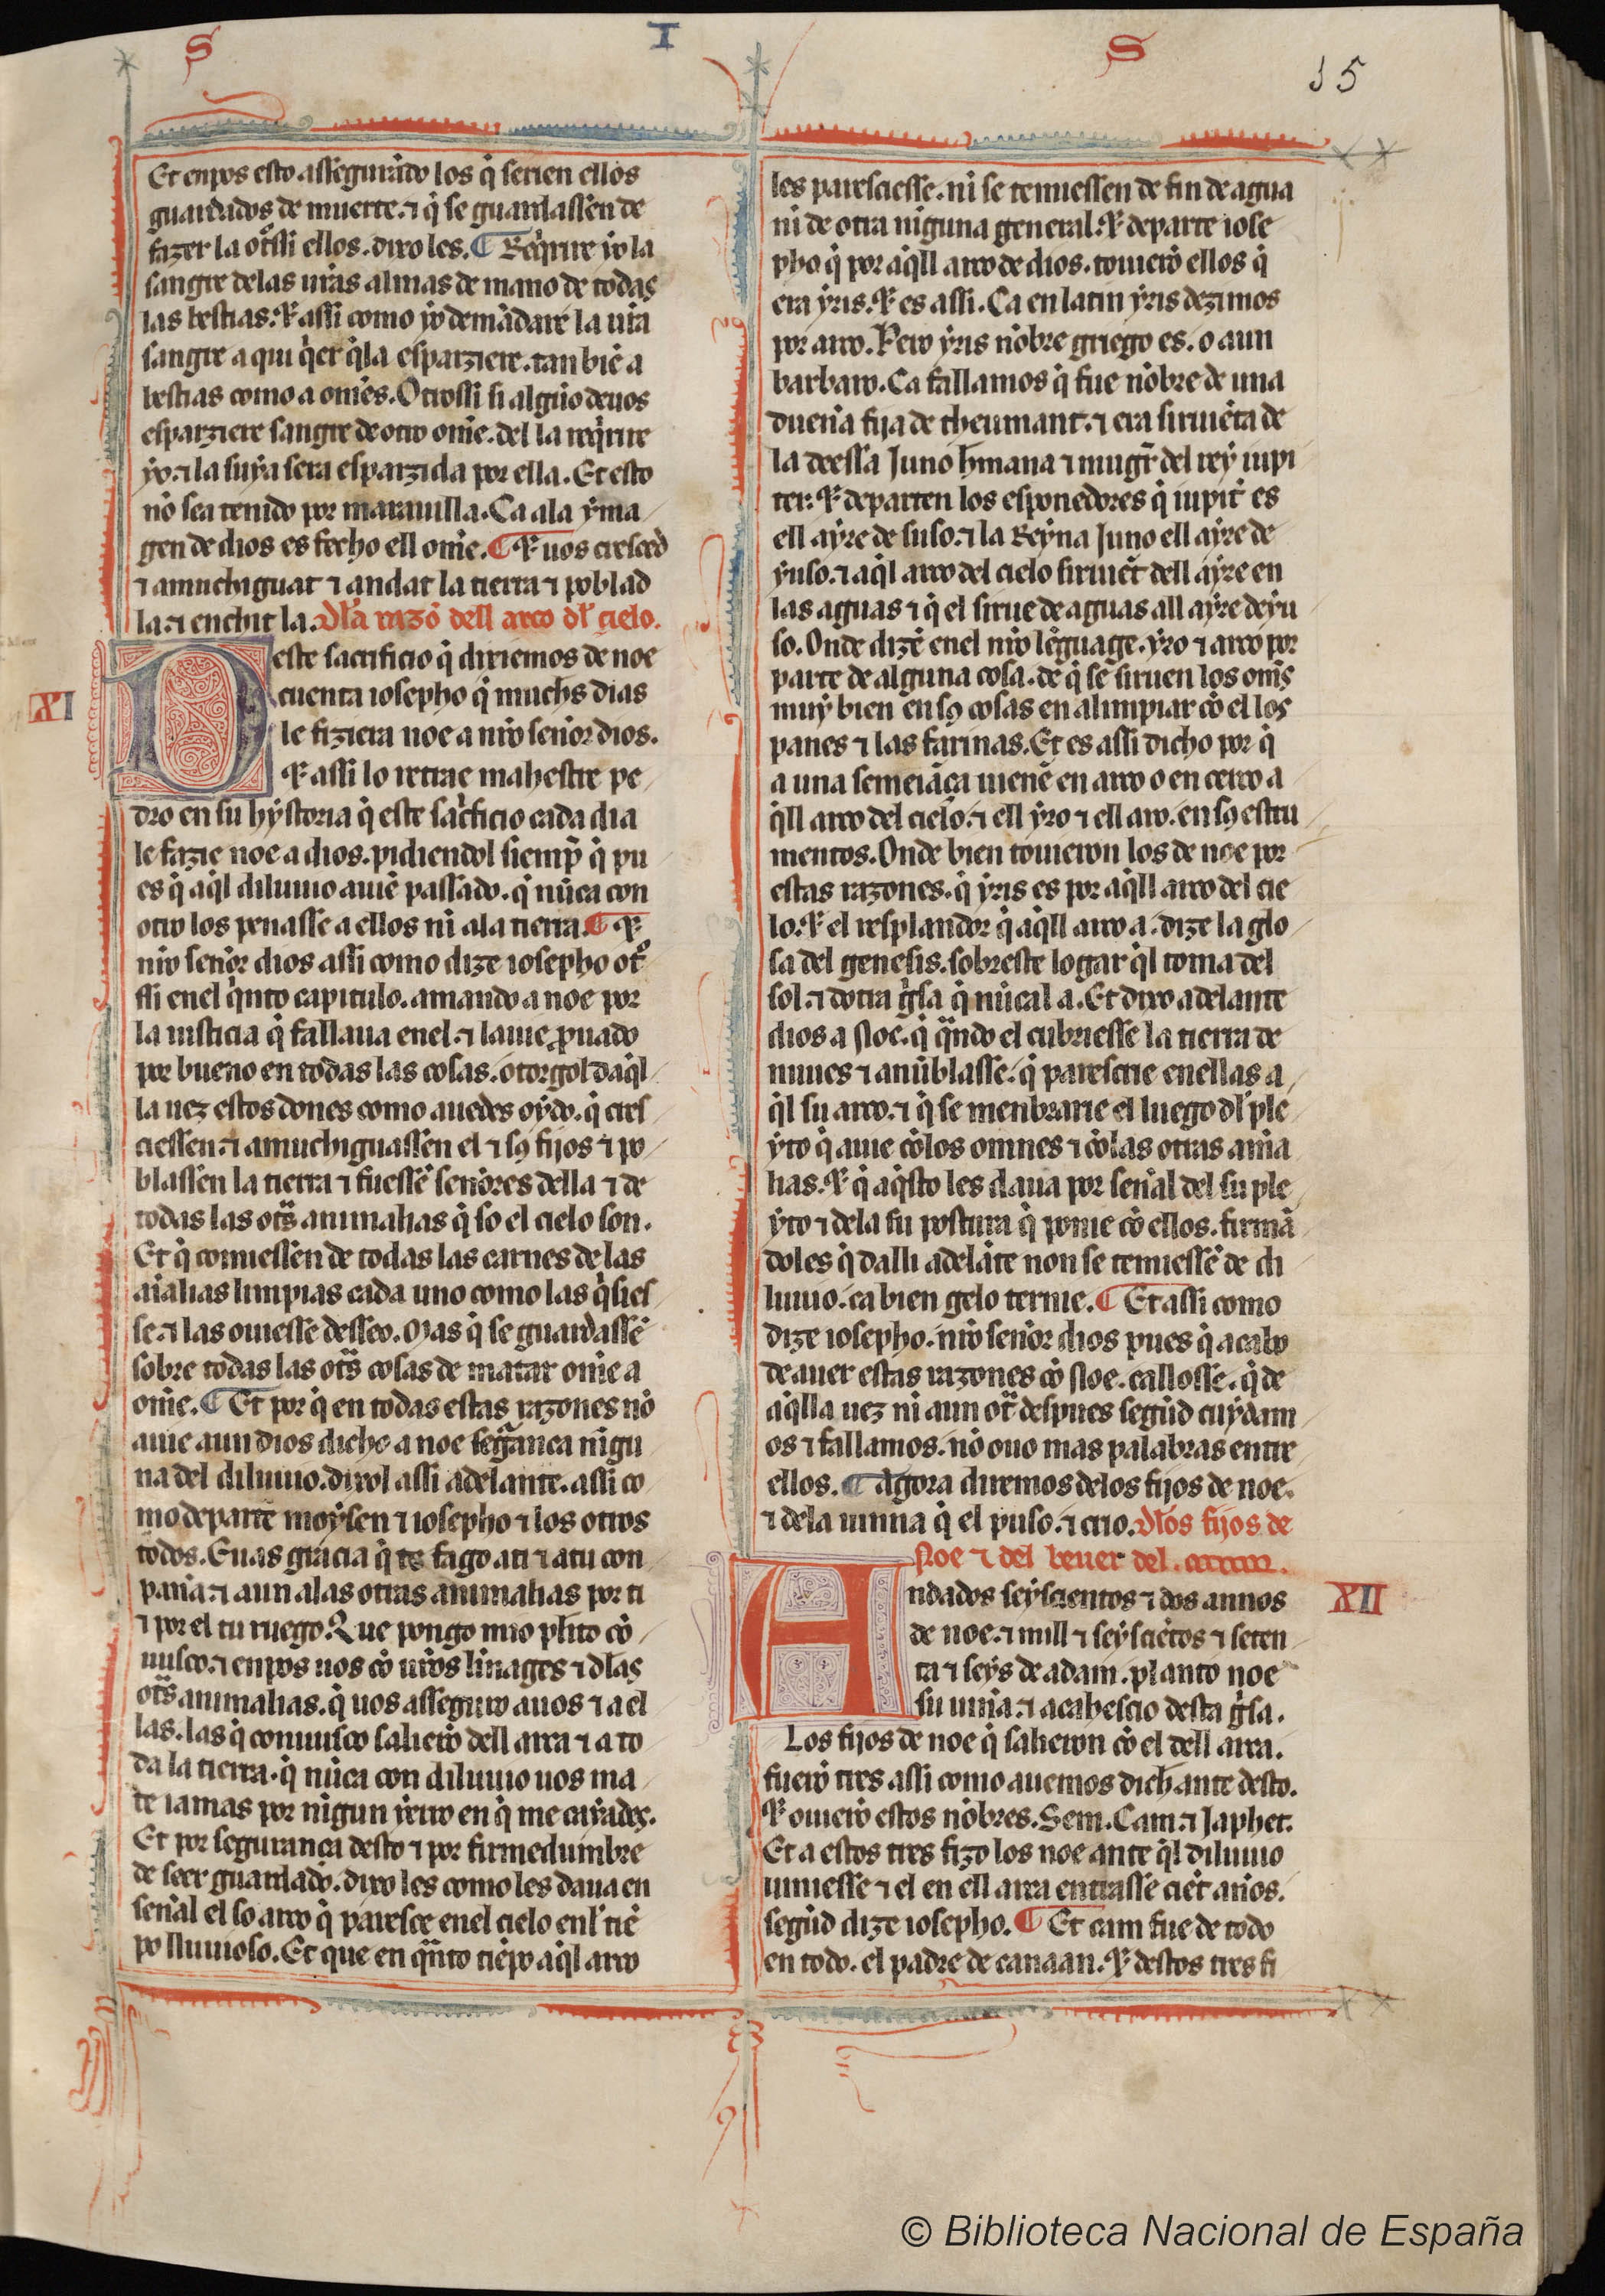 S I S
15
Et enpos esto assegurãdo los q̃ serien ellos
guardados de muerte. ⁊ q̃ se guardassen de
fazer la otssi ellos. dixo les. ¶ Reqrire yo la
sangre delas ur̃as almas de mano de todas
las bestias. ⁊ assi como yo demãdare la ur̃a
sangre a qui qer q̃la esparziere. tan biẽ a
bestias como a om̃es. Otrossi si algũo deuos
esparziere sangre de otro om̃e. del la reqrire
yo. ⁊ la suya sera esparzida por ella. Et esto
nõ sea tenido por marauilla. Ca ala yma
gen de dios es fecho ell om̃e. ¶ ⁊ uos cresced
⁊ amuchiguat ⁊ andat la tierra ⁊ poblad
la. ⁊ enchit la. Dla razõ dell arco dl cielo.
XI
Deste sacrificio q̃ dixiemos de noe
cuenta iosepho q̃ muchs dias
le fiziera noe a nr̃o sennor dios.
⁊ assi lo retrae mahestre pe
dro en su hystoria q̃ este sacficio cada dia
le fazie noe a dios. pidiendol siemp̃ q̃ pu
es q̃ aql diluuio auiẽ passado. q̃ nũca con
otro los penasse a ellos ni ala tierra. ¶ ⁊
nr̃o sennor dios assi como dize iosepho otr̃
ssi enel qnto capitulo. amando a noe por
la iusticia q̃ fallaua enel. ⁊ lauie ꝓuado
por bueno en todas las cosas. otorgol daql
la uez estos dones como auedes oydo. q̃ cres
ciessen. ⁊ amuchiguassen el ⁊ sꝯ fijos ⁊ po
blassen la tierra ⁊ fuessẽ sennores della ⁊ de
todas las ots animalias q̃ so el cielo son.
Et q̃ comiessen de todas las carnes de las
aĩalias limpias cada uno como las qsies
se. ⁊ las ouiesse desseo. Mas q̃ se guardassẽ
sobre todas las ots cosas de matar om̃e a
om̃e. ¶ Et por q̃ en todas estas razones nõ
auie aun dios dicho a noe segranca nigu
na del diluuio. dixol assi adelante. assi co
mo departe moysen ⁊ iosepho ⁊ los otros
todos. Euas gracia q̃ te fago ati ⁊ atu con
panna. ⁊ aun alas otras animalias por ti
⁊ por el tu ruego. Que pongo mio plito cõ
uusco. ⁊ enpos uos cõ ur̃os linages ⁊ dlas
ots animalias. q̃ uos asseguro auos ⁊ a el
las. las q̃ conuusco salierõ dell arca ⁊ a to
da la tierra. q̃ nũca con diluuio uos ma
te iamas por nigun yerro en q̃ me cayades.
Et por seguranca desto ⁊ por firmedumbre
de seer guardado. dixo les como les daua en
sennal el so arco q̃ paresce enel cielo enl tiẽ
po lluuioso. Et que en qnto tiẽpo aql arco
les paresciesse. ni se temiessen de fin de agua
ni de otra niguna general. ⁊ departe iose
pho q̃ por aqll arco de dios. touierõ ellos q̃
era yris. ⁊ es assi. Ca en latin yris dezimos
por arco. Pero yris nõbre griego es. o aun
barbaro. Ca fallamos q̃ fue nõbre de una
duenna fija de theumant. ⁊ era siruiẽta de
la deessa Juno hmana ⁊ mugr̃ del rey iupi
ter. ⁊ departen los esponedores q̃ iupit es
ell ayre de suso. ⁊ la Reyna Juno ell ayre de
yuso. ⁊ aql arco del cielo siruiẽt dell ayre en
las aguas ⁊ q̃ el sirue de aguas all ayre de yu
so. Onde dizẽ enel nr̃o lẽguage. yro ⁊ arco por
parte de alguna cosa. de q̃ se siruen los om̃s
muy bien en sꝯ cosas en alimpiar cõ el los
panes ⁊ las farinas. Et es assi dicho por q̃
a una semeiãça uienẽ en arco o en cerco a
qll arco del cielo. ⁊ ell yro ⁊ ell aro. en sꝯ estru
mentos. Onde bien touieron los de noe por
estas razones. q̃ yris es por aqll arco del cie
lo. ⁊ el resplandor q̃ aqll arco a. dize la glo
sa del genesis. sobreste logar ql toma del
sol. ⁊ dotra gsa q̃ nũcal a. Et dixo adelante
dios a Noe. q̃ qndo el cubriesse la tierra de
nuues ⁊ anũblasse. q̃ parescrie enellas a
ql su arco. ⁊ q̃ se menbrarie el luego dl ple
yto q̃ auie cõlos omnes ⁊ cõlas otras anima
lias. ⁊ q̃ aqsto les daua por sennal del su ple
yto ⁊ dela su postura q̃ ponie cõ ellos. firmã
doles q̃ dalli adelãte non se temiessẽ de di
luuio. ca bien gelo ternie. ¶ Et assi como
dize iosepho. nr̃o sennor dios pues q̃ acabo
de auer estas razones cõ Noe. callosse. q̃ de
aqlla uez ni aun otr despues segũd cuydam
os ⁊ fallamos. nõ ouo mas palabras entre
ellos. ¶ Agora diremos delos fijos de noe.
⁊ dela uinna q̃ el puso. ⁊ crio. Dlos fijos de
Noe ⁊ del beuer del.
XII
Andados seyscientos ⁊ dos annos
de noe. ⁊ mill ⁊ seysciẽtos ⁊ seten
ta ⁊ seys de adam. planto noe
su uinna. ⁊ acahescio desta gsa.
Los fijos de noe q̃ salieron cõ el dell arca.
fuerõ tres assi como auemos dich ante desto.
⁊ ouierõ estos nõbres. Sem. Cam. ⁊ Japhet.
Et a estos tres fizo los noe ante ql diluuio
uiniesse ⁊ el en ell arca entrassẽ ciẽt annos.
segũd dize iosepho. ¶ Et cam fue de todo
en todo. el padre de canaan. ⁊ destos tres fi
© Biblioteca Nacional de España